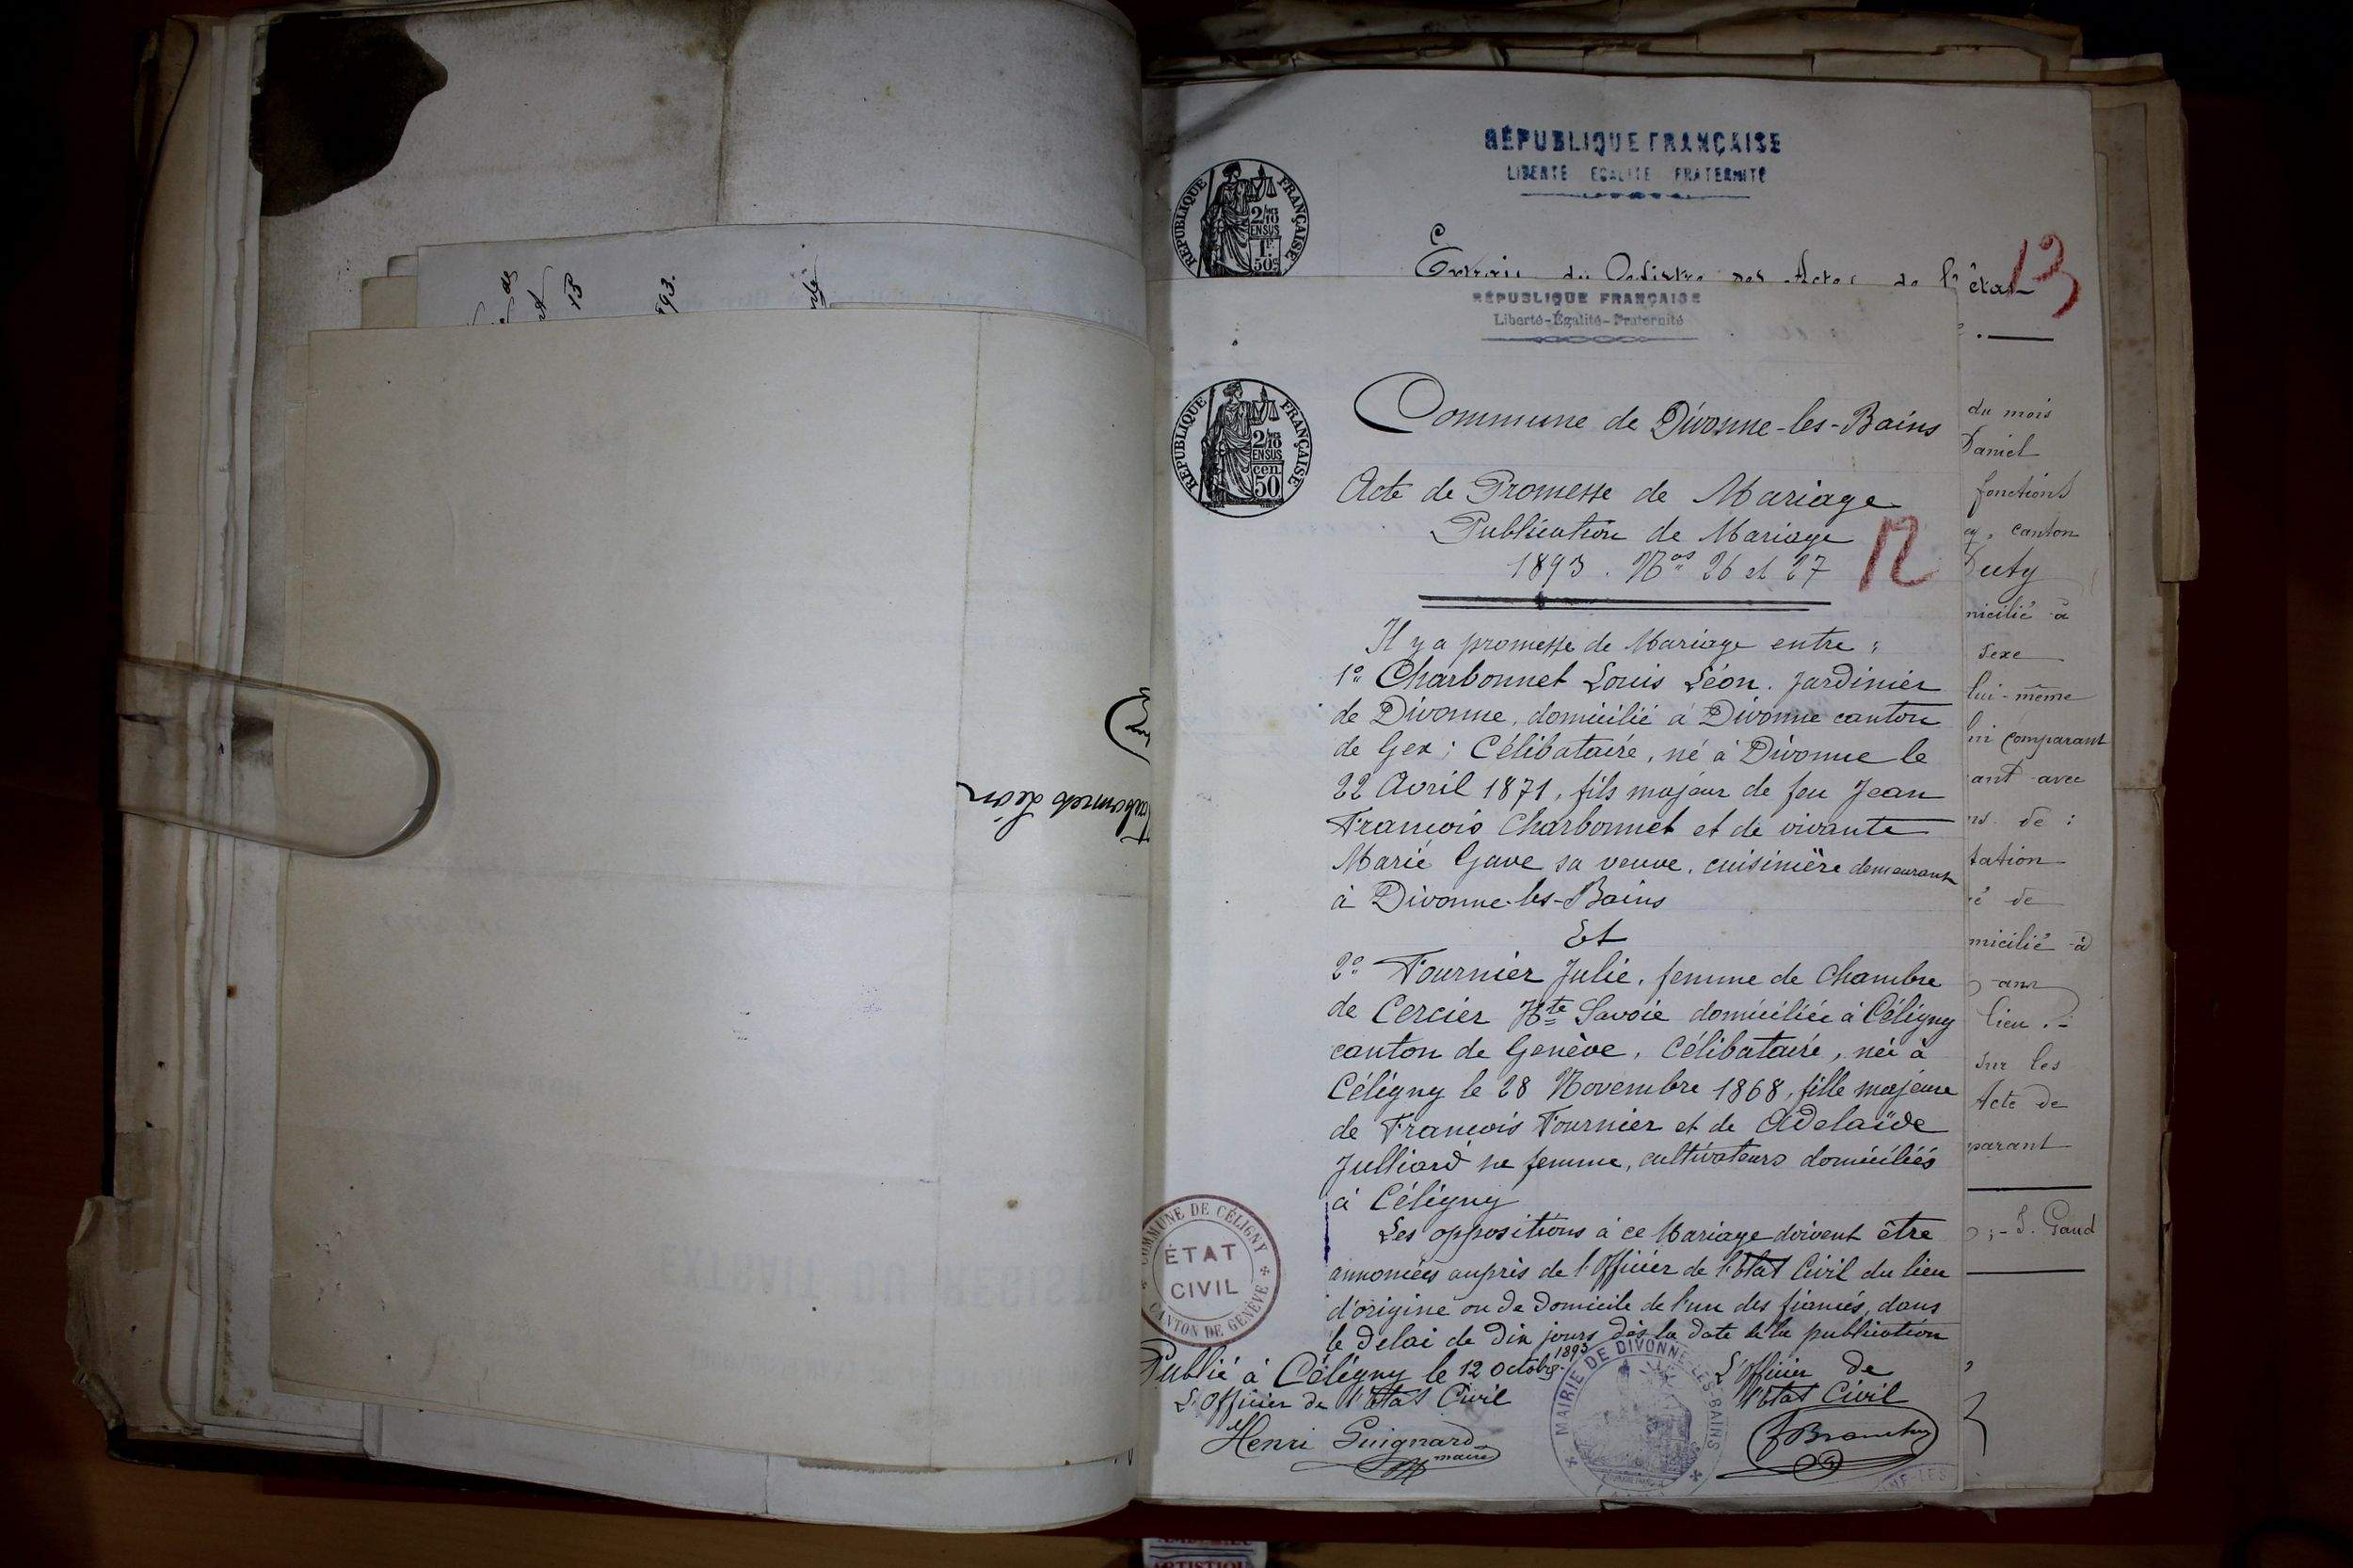 13
893.
Charbonnet Léon
RÉPUBLIQUE FRANÇAISE
LIBERTÉ EGALITÉ FRATERNITÉ
RÉPUBLIQUE FRANÇAISE
2/10 EN SUS
1F. 50c
Extrait du Registre des Actes de l'état
13
RÉPUBLIQUE FRANÇAISE
Liberté-Égalité-Fraternité
RÉPUBLIQUE FRANÇAISE
2/10 EN SUS
cen. 50
Commune de Divonne-les-Bains
Acte de Promesse de Mariage
Publication de Mariage
1893. Nos 26 et 27
12
Il y a promesse de Mariage entre :
1o Charbonnet Louis Léon. Jardinier
de Divonne, domicilié à Divonne canton
de Gex ; Célibataire, né à Divonne le
22 Avril 1871, fils majeur de feu Jean
François Charbonnet et de vivante
Marie Gave sa veuve, cuisinière demeurant
à Divonne-les-Bains
Et
2o Fournier Julie, femme de Chambre
de Cercier Hte Savoie domiciliée à Céligny
canton de Genève, Célibataire, née à
Céligny le 28 Novembre 1868, fille majeure
de François Fournier et de Adelaïde
Julliard sa femme, cultivateurs domiciliés
à Céligny
Les oppositions à ce Mariage doivent être
annoncées auprès de l'Officier de l'Etat Civil du lieu
d'origine ou de domicile de l'un des fiancés, dans
le delai de dix jours dès la date de la publication
Publié à Céligny le 12 octobre 1893
L'Officier de l'Etat Civil
Henri Guignard
maire
L'Officier de
l'Etat Civil
COMMUNE DE CÉLIGNY
ÉTAT
CIVIL
CANTON DE GENÈVE
MAIRIE DE DIVONNE-LES-BAINS
du mois
Daniel
fonctions
canton
Duty
micilié à
sexe
lui-même
comparant
ant avec
de :
tation
de
micilié à
ans
lieu .-
sur les
Acte de
parant
J. Gaud